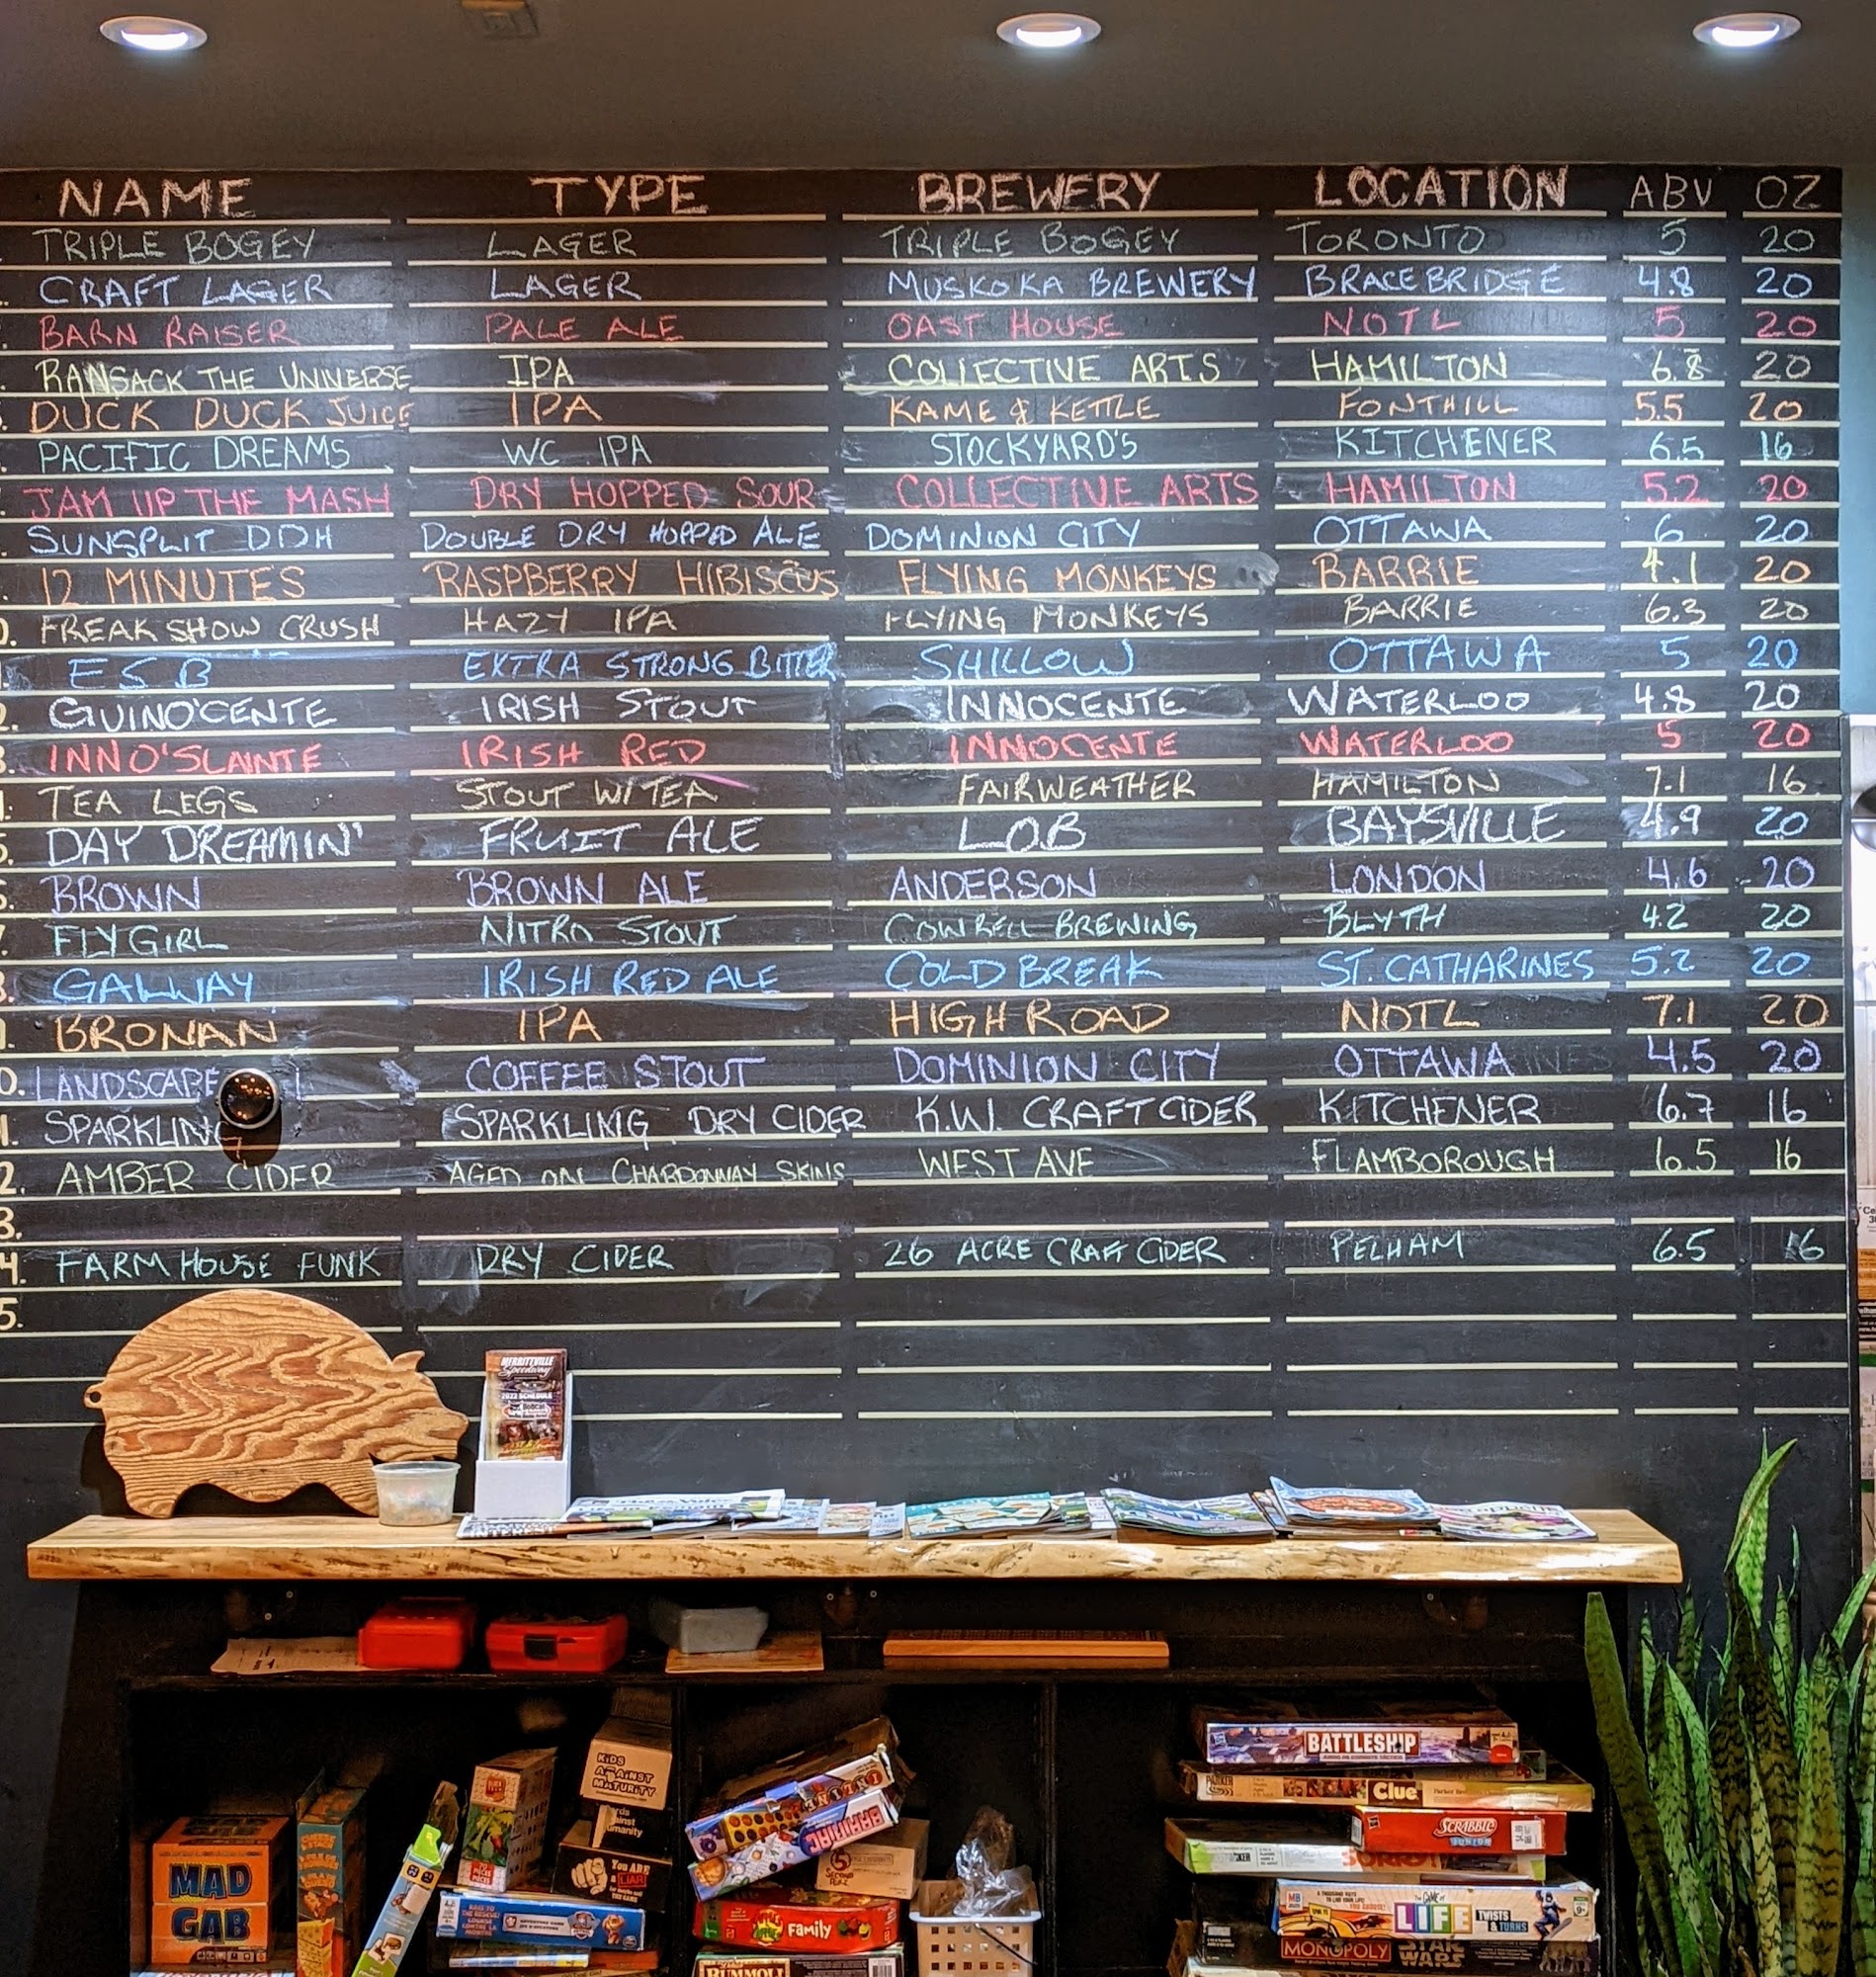 NAME TYPE BREWERY LOCATION ABV OZ
TRIPLE BOGEY LAGER TRIPLE BOGEY TORONTO 5 20
CRAFT LAGER LAGER MUSKOKA BREWERY BRACEBRIDGE 4.8 20
BARN RAISER PALE ALE OAST HOUSE NOTL 5 20
RANSACK THE UNIVERSE IPA COLLECTIVE ARTS HAMILTON 6.8 20
DUCK DUCK JUICE IPA KAME & KETTLE FONTHILL 5.5 20
PACIFIC DREAMS WC IPA STOCKYARD'S KITCHENER 6.5 16
JAM UP THE MASH DRY HOPPED SOUR COLLECTIVE ARTS HAMILTON 5.2 20
SUNSPLIT DDH DOUBLE DRY HOPPED ALE DOMINION CITY OTTAWA 6 20
12 MINUTES RASPBERRY HIBISCUS FLYING MONKEYS BARRIE 4.1 20
0. FREAK SHOW CRUSH HAZY IPA FLYING MONKEYS BARRIE 6.3 20
1. ESB EXTRA STRONG BITTER SHILLOW OTTAWA 5 20
2. GUINO'CENTE IRISH STOUT INNOCENTE WATERLOO 4.8 20
3. INNO'SLAINTE IRISH RED INNOCENTE WATERLOO 5 20
4. TEA LEGS STOUT W/TEA FAIRWEATHER HAMILTON 7.1 16
5. DAY DREAMIN' FRUIT ALE L.O.B BAYSVILLE 4.9 20
6. BROWN BROWN ALE ANDERSON LONDON 4.6 20
7. FLY GIRL NITRO STOUT COWBELL BREWING BLYTH 4.2 20
8. GALWAY IRISH RED ALE COLD BREAK ST. CATHARINES 5.2 20
9. BRONAN IPA HIGH ROAD NOTL 7.1 20
0. LANDSCAPE COFFEE STOUT DOMINION CITY OTTAWA 4.5 20
1. SPARKLING SPARKLING DRY CIDER K.W. CRAFT CIDER KITCHENER 6.7 16
2. AMBER CIDER AGED ON CHARDONNAY SKINS WEST AVE FLAMBOROUGH 6.5 16
3.
4. FARMHOUSE FUNK DRY CIDER 26 ACRE CRAFT CIDER PELHAM 6.5 16
5.
MERRITTVILLE
Speedway
2022 SCHEDULE
BATTLESHIP
Clue
SCRABBLE
JUNIOR
THE GAME OF
LIFE
TWISTS
& TURNS
MONOPOLY STAR WARS
KIDS
AGAINST
MATURITY
YOU ARE
A LIAR!
MAD
GAB
Family
RUMMOLI